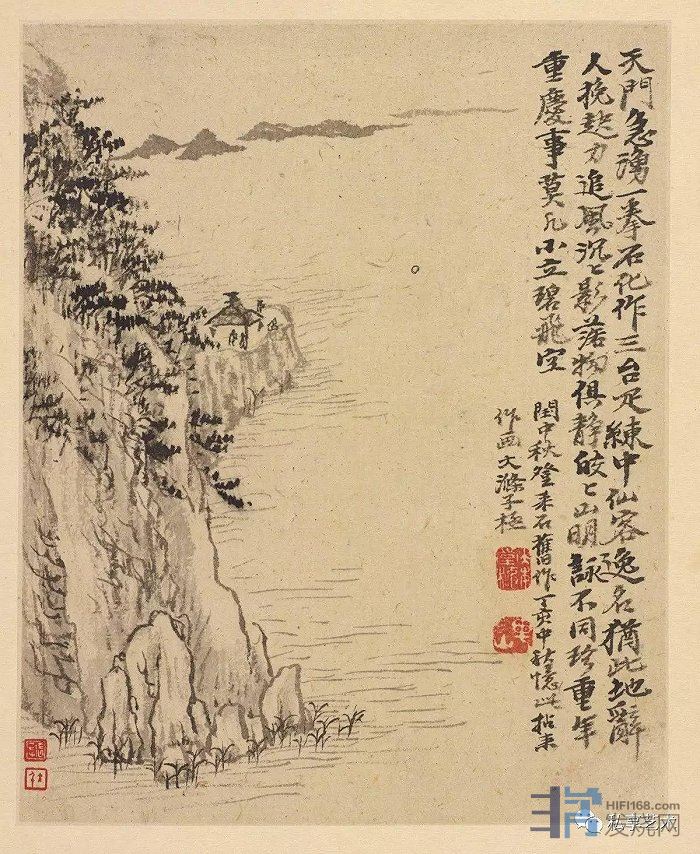 天門急湧一拳石化作三台疋練中仙客逸名猶此地辭
人挽趂力追風沉〻影落物俱靜皎〻山明詠不同珍重年
重慶事莫凢小立碧飛空
閏中秋登采石舊作丁亥中秋憶此拈來
作画大滌子極
HIFI168.com
发烧网